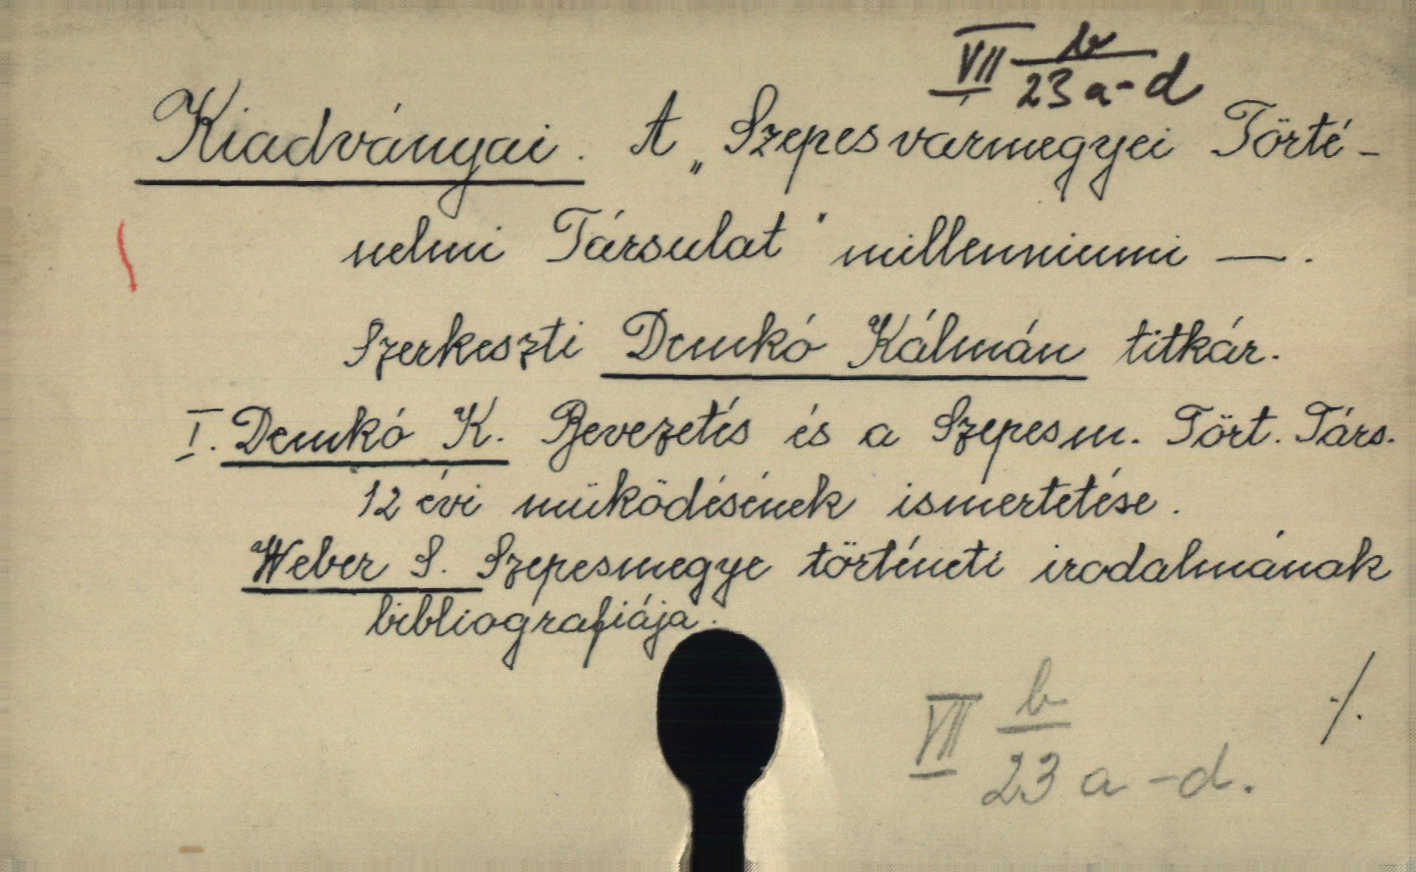 VII b/23 a-d
Kiadványai. A „Szepesvarmegyei Törté-
nelmi Társulat" millenniumi —.
Szerkeszti Demkó Kálmán titkár.
I. Demkó K. Bevezetés és a Szepesm. Tört. Társ.
12 évi müködésének ismertetése.
Weber S. Szepesmegye történeti irodalmának
bibliografiája.
./.
VII b/23 a-d.